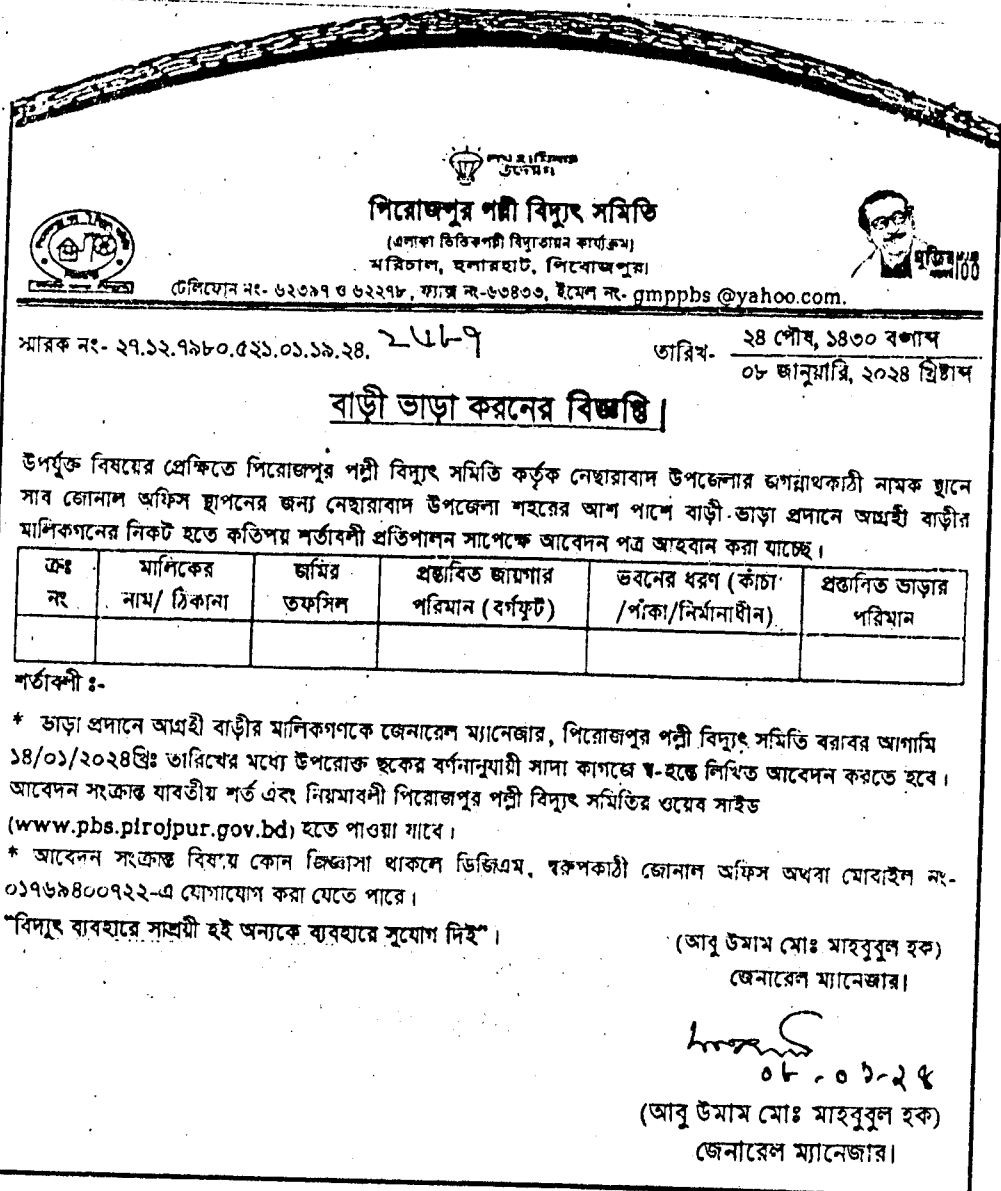 শেখ হাসিনার
উদ্যোগ
পিরোজপুর পল্লী বিদ্যুৎ সমিতি
(এলাকা ভিত্তিকপল্লী বিদ্যুতায়ন কার্যক্রম)
মরিচাল, হুলারহাট, পিরোজপুর।
মুজিব
100
টেলিফোন নং- ৬২৩৯৭ ও ৬২২৭৮, ফ্যাক্স নং-৬৩৪৩৩, ইমেল নং- gmppbs @yahoo.com.
স্মারক নং- ২৭.১২.৭৯৮০.৫২১.০১.১৯.২৪. ২৬৮৭
তারিখ- ২৪ পৌষ, ১৪৩০ বঙ্গাব্দ
০৮ জানুয়ারি, ২০২৪ খ্রিষ্টাব্দ
বাড়ী ভাড়া করনের বিজ্ঞপ্তি।
উপর্যুক্ত বিষয়ের প্রেক্ষিতে পিরোজপুর পল্লী বিদ্যুৎ সমিতি কর্তৃক নেছারাবাদ উপজেলার জগন্নাথকাঠী নামক স্থানে
সাব জোনাল অফিস স্থাপনের জন্য নেছারাবাদ উপজেলা শহরের আশ পাশে বাড়ী-ভাড়া প্রদানে আগ্রহী বাড়ীর
মালিকগনের নিকট হতে কতিপয় শর্তাবলী প্রতিপালন সাপেক্ষে আবেদন পত্র আহবান করা যাচ্ছে।
ক্রঃ নং
মালিকের নাম/ ঠিকানা
জমির তফসিল
প্রস্তাবিত জায়গার পরিমান (বর্গফুট)
ভবনের ধরণ (কাঁচা /পাঁকা/নির্মানাধীন)
প্রস্তাবিত ভাড়ার পরিমান
শর্তাবলী ঃ-
* ভাড়া প্রদানে আগ্রহী বাড়ীর মালিকগণকে জেনারেল ম্যানেজার, পিরোজপুর পল্লী বিদ্যুৎ সমিতি বরাবর আগামি
১৪/০১/২০২৪খ্রিঃ তারিখের মধ্যে উপরোক্ত ছকের বর্ণনানুযায়ী সাদা কাগজে স্ব-হস্তে লিখিত আবেদন করতে হবে।
আবেদন সংক্রান্ত যাবতীয় শর্ত এবং নিয়মাবলী পিরোজপুর পল্লী বিদ্যুৎ সমিতির ওয়েব সাইড
(www.pbs.pirojpur.gov.bd) হতে পাওয়া যাবে।
* আবেদন সংক্রান্ত বিষয়ে কোন জিজ্ঞাসা থাকলে ডিজিএম, স্বরুপকাঠী জোনাল অফিস অথবা মোবাইল নং-
০১৭৬৯৪০০৭২২-এ যোগাযোগ করা যেতে পারে।
"বিদ্যুৎ ব্যবহারে সাশ্রয়ী হই অন্যকে ব্যবহারে সুযোগ দিই"।
(আবু উমাম মোঃ মাহবুবুল হক)
জেনারেল ম্যানেজার।
০৮-০১-২৪
(আবু উমাম মোঃ মাহবুবুল হক)
জেনারেল ম্যানেজার।